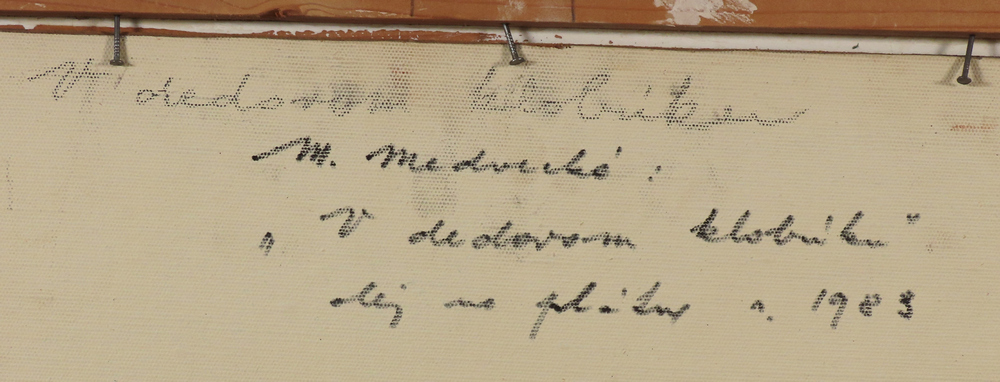 V dedovom klobúku
M. Medvecká:
„V dedovom klobúku"
olej na plátne r. 1983